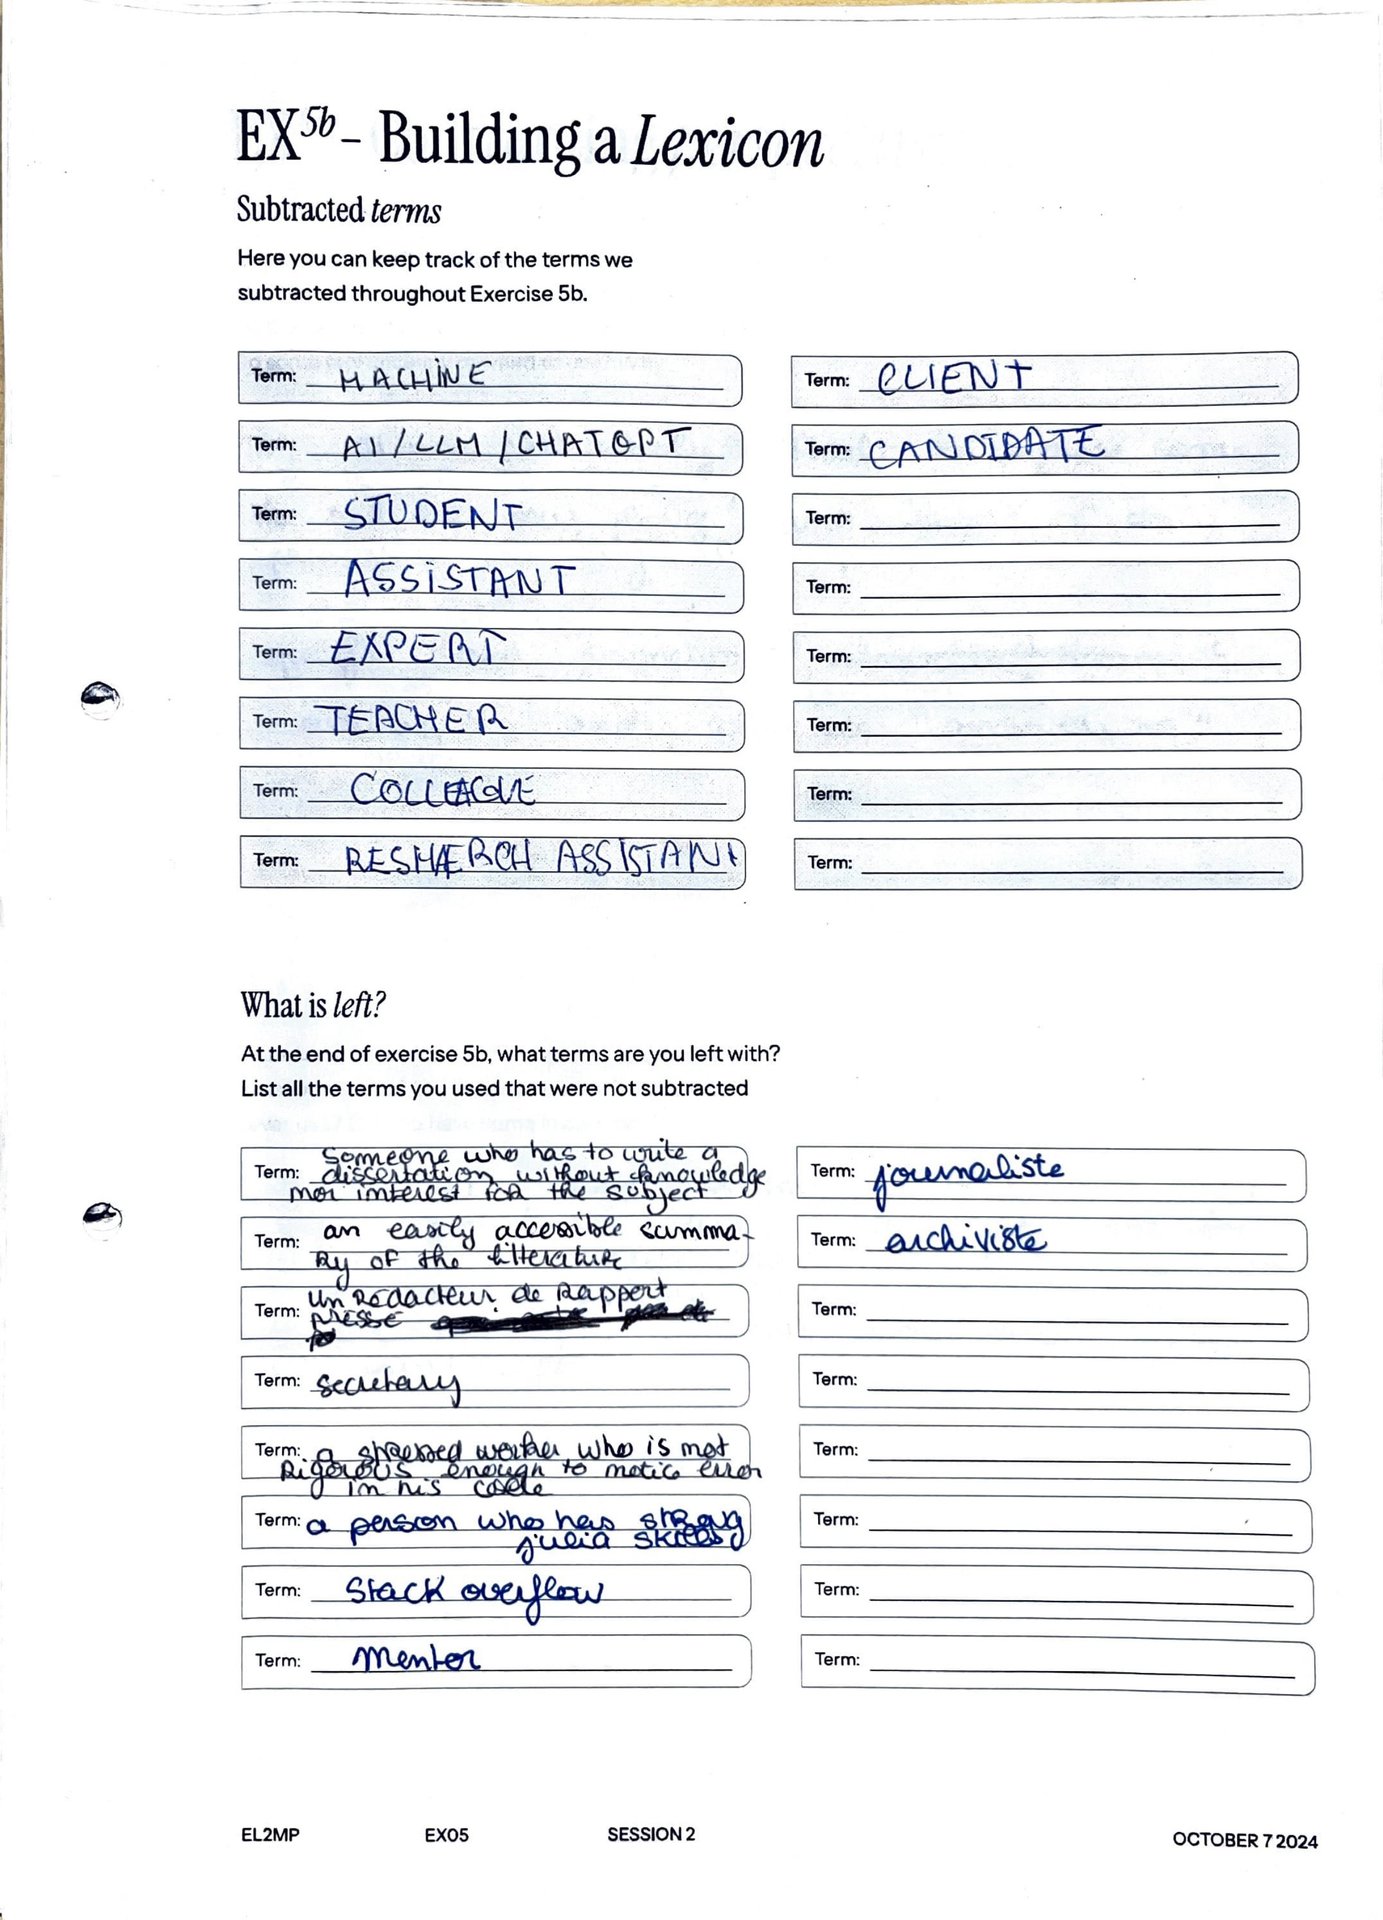 EX5b – Building a Lexicon
Subtracted terms
Here you can keep track of the terms we
subtracted throughout Exercise 5b.
Term: MACHINE
Term: AI / LLM / CHATGPT
Term: STUDENT
Term: ASSISTANT
Term: EXPERT
Term: TEACHER
Term: COLLEAGUE
Term: RESEARCH ASSISTANT
Term: CLIENT
Term: CANDIDATE
Term:
Term:
Term:
Term:
Term:
Term:
What is left?
At the end of exercise 5b, what terms are you left with?
List all the terms you used that were not subtracted
Someone who has to write a
Term: dissertation without knowledge
nor interest for the subject
Term: an easily accessible summa-
ry of the litterature
Term: un Rédacteur de Rapport
pressé
Term: secretary
Term: a stressed worker who is not
Rigorous enough to notice error
in his code
Term: a person who has strong
julia skills
Term: Stack overflow
Term: Mentor
Term: journaliste
Term: archiviste
Term:
Term:
Term:
Term:
Term:
Term:
EL2MP EX05 SESSION 2 OCTOBER 7 2024